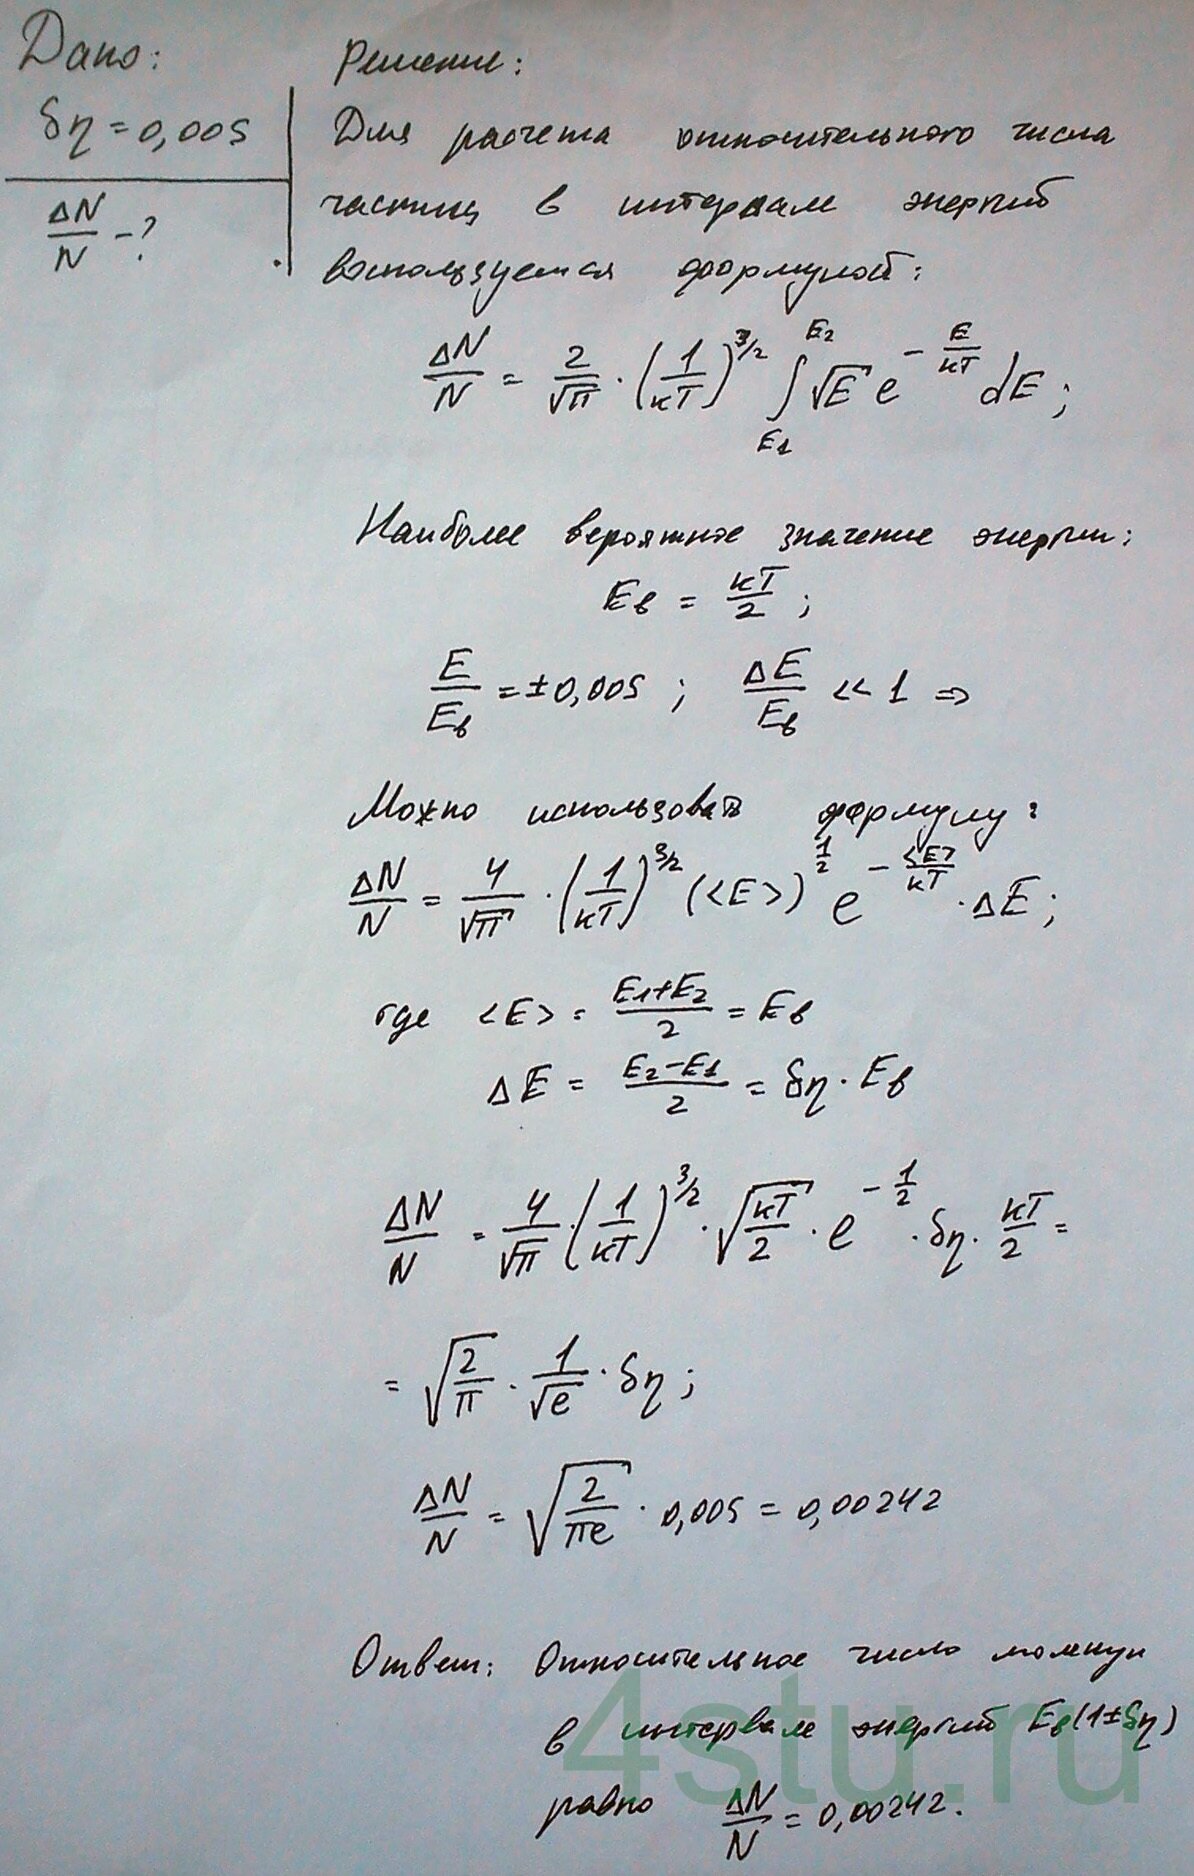 Дано:
δη = 0,005
ΔN/N - ?
Решение:
Для расчета относительного числа
частиц в интервале энергий
воспользуемся формулой:
ΔN/N = 2/√π · (1/кТ)^3/2 ∫_E1^E2 √E e^(-E/кТ) dE;
Наиболее вероятное значение энергии:
Eв = кТ/2;
E/Eв = ±0,005; ΔE/Eв << 1 ⇒
Можно использовать формулу:
ΔN/N = 4/√π · (1/кТ)^3/2 (<E>)^1/2 e^(-<E>/кТ) · ΔE;
где <E> = (E1+E2)/2 = Eв
ΔE = (E2-E1)/2 = δη · Eв
ΔN/N = 4/√π · (1/кТ)^3/2 · √(кТ/2) · e^(-1/2) · δη · кТ/2 =
= √(2/π) · 1/√e · δη;
ΔN/N = √(2/πe) · 0,005 = 0,00242
Ответ: Относительное число молекул
в интервале энергий Eв(1±δη)
равно ΔN/N = 0,00242.
4stu.ru